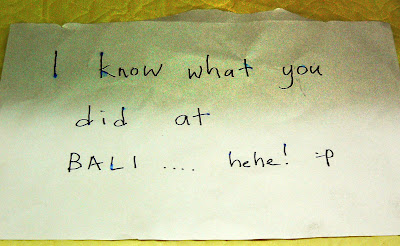 I know what you
did at
BALI .... hehe! :p